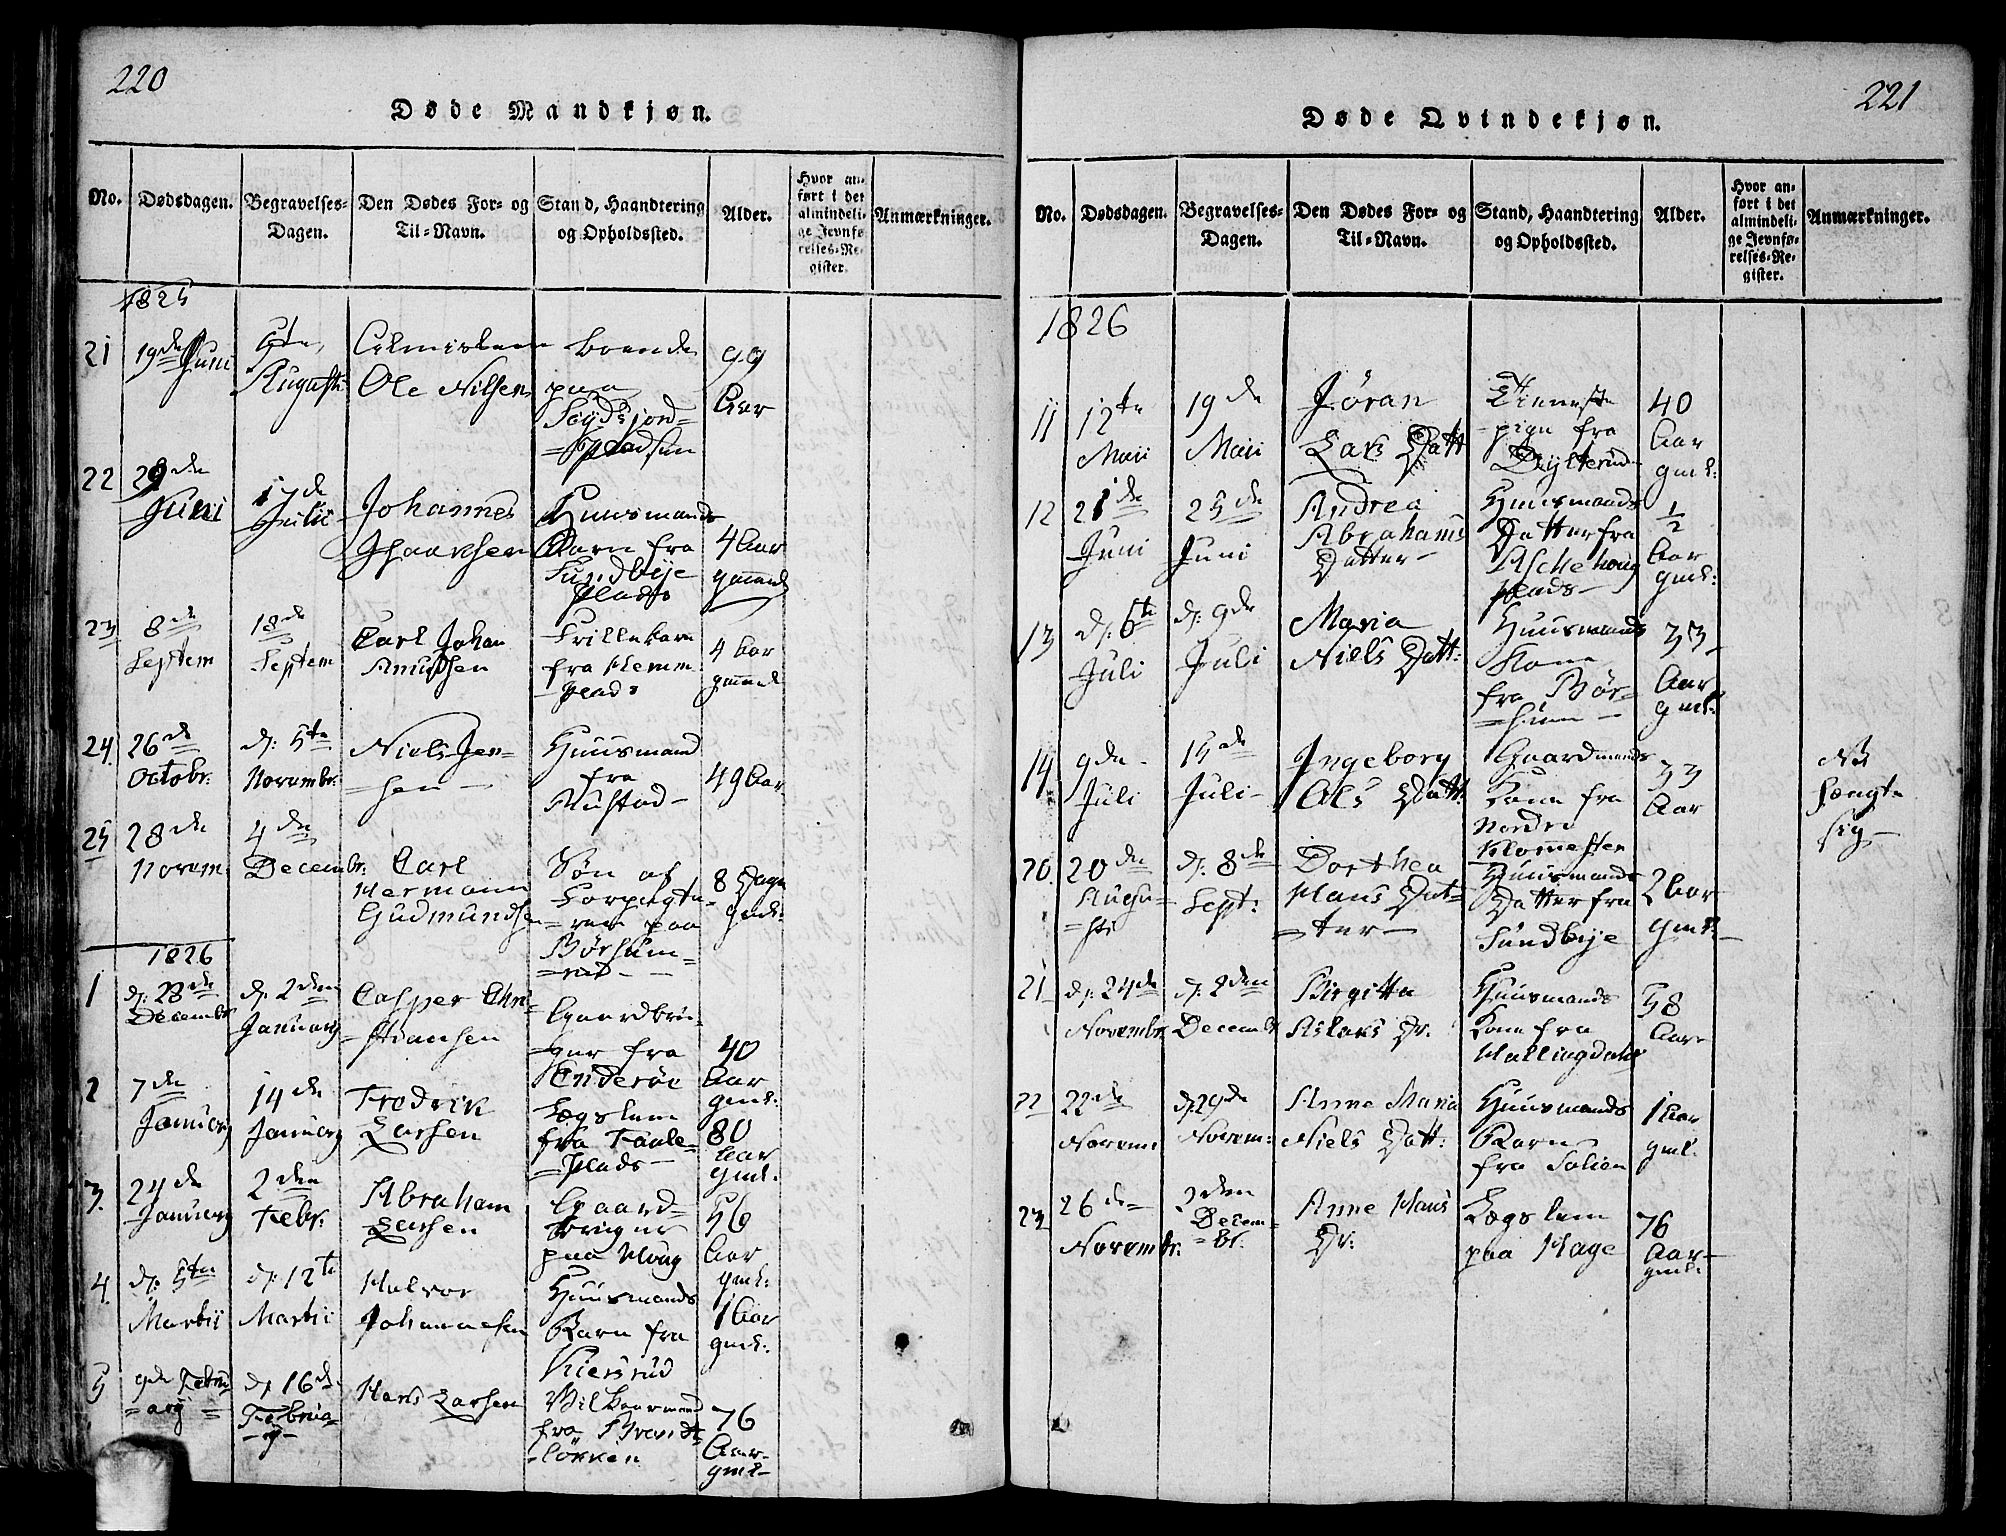 220
Døde Mandkjøn.
No. Dødsdagen. Begravelses-Dagen. Den Dødes For- og Til-Navn. Stand, Haandtering og Opholdssted. Alder. Hvor anført i det almindelige Jevnførelses-Register. Anmærkninger.
1825
21 19de Juni 5te Augusti Ole Nilsen boende paa 99 Aar
22 29de Juni 17de Julii Johannes Huusmands Barn fra Sundbye Plads 4 Aar gammel
23 8de Septem 18de Septem Carl Johan Knudsen Frillebarn fra Hemm Plads 4 Aar gammel
24. 26de Octobr: d: 5te Novembr: Niels Jensen Huusmand fra Rustad 49 Aar
25 28de Novem: 4de Decembr: Carl Hermann Gudmundsen Søn af Forpagteren paa Børsumrud 8 Dage gml:
1826
1 d: 28de Decembr 2den Januarij Casper Christiansen Gaardbruger fra Enderøe 40 Aar gml:
2 7de Januarij 14de Januarij Fredrik Larsen Lægslem fra Plads 80 Aar gml:
3. 24de Januarij 2den Febr: Abraham Larsen Gaardbruger paa Houg 56 Aar gml:
4. d: 5te Martii d: 12te Martii Halvor Johannesen Huusmands Barn fra Kiersrud 1 Aar gml:
5 9de Februarij d: 16de Februarij Hans Larsen fra 76 Aar gml
221
Døde Qvindekjøn.
No. Dødsdagen. Begravelses-Dagen. Den Dødes For- og Til-Navn. Stand, Haandtering og Opholdssted. Alder. Hvor anført i det almindelige Jevnførelses-Register. Anmærkninger.
1826
11 12te Maii 19de Maii Jøran Lars Datt Tienestepige fra Dylterud 40 Aar gml:
12 21de Juni 25de Juni Andrea Abrahams Datter Huusmands Datter fra Aschehoug Plads 1/2 Aar gml:
13 d: 6te Juli d: 9de Juli Maria Niels Datt: Huusmands Kone fra Børsum 33 Aar gml:
14 9de Juli 15de Juli Ingeborg Ols Datt: Gaardmands Kone fra Nordre Klommesten 33 Aar NB hængte sig
20. 20de Augusti d: 8de Sept: Dorthea Hans Datter Huusmands Datter fra Sundbye 2 Aar gml:
21 d: 24de Novembr d: 2den Decembr Birgitta Aslaks Dr. Huusmands Kone fra Hallingdahl 58 Aar
22 22de Novem: d: 29de Novem: Anne Maria Niels Datt: Huusmands Barn fra Solien 1 Aar gml:
23 26de Novembr: 2den Decembr. Anne Hans Dr: Lægslem paa Hage 76 Aar gml: